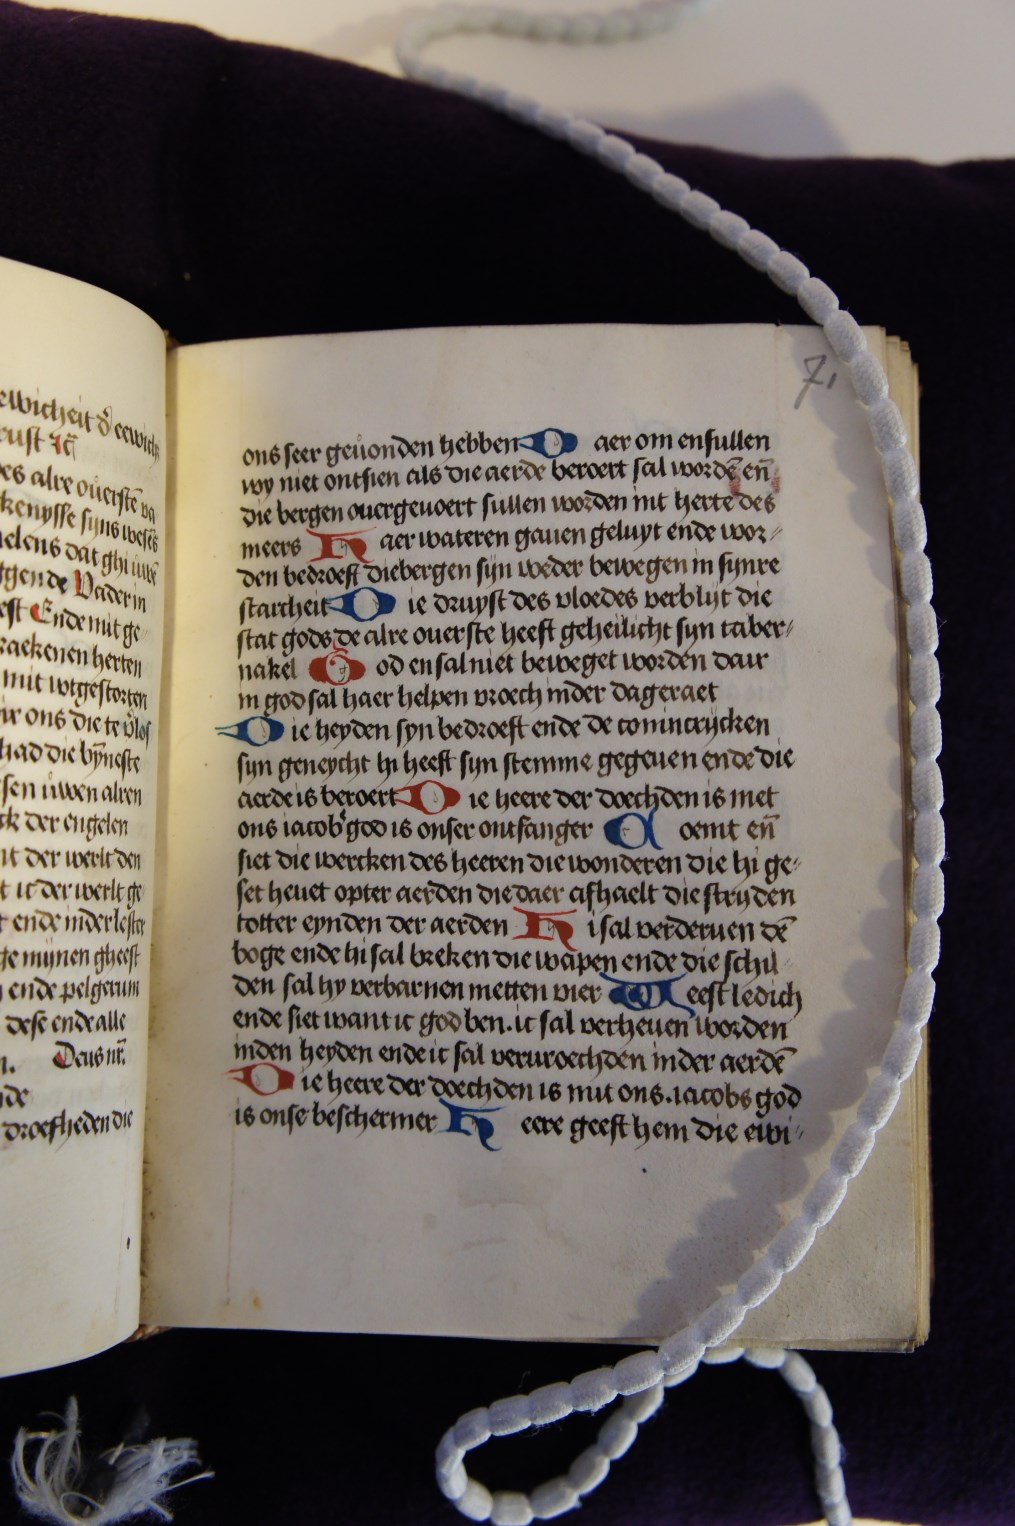 ewicheit đ eewich
rust
es alre ouerstē va
kenysse sijns wesēs
elens dat ghi
ggende Vader in
est Ende mit ge
raekenen herten
mit wtgestorten
ons die te
had die bijneste
sen uwen alren
ck der engelen
nt der werlt den
t ic der werlt ge
t ende inder lester
ge mijnen gheest
ende pelgerum
dese ende alle
Deus nr̄
de
droefheden die
71
ons seer geuonden hebben Daer om en sullen
wy niet ontsien als die aerde beroert sal wordē en̄
die bergen ouergeuoert sullen worden int herte des
meers Haer wateren gauen geluyt ende wor-
den bedroeft die bergen sijn weder bewegen in synre
starcheit Die druyst des vloedes verblijt die
stat gods de alre ouerste heeft geheilicht sijn taber-
nakel God en sal niet beweget worden dair
in god sal haer helpen vroech inder dageraet
Die heyden syn bedroeft ende de conincrijcken
sijn geneycht hi heeft sijn stemme gegeuen ende die
aerde is beroert Die heere der doechden is met
ons iacobs god is onser ontfanger Coemt en̄
siet die wercken des heeren die wonderen die hi ge-
set heuet opter aerden die daer afhaelt die stryden
totter eynden der aerden Hi sal verderuen dē
boge ende hi sal breken die wapen ende die schil
den sal hy verbarnen metten vier Weest ledich
ende siet want ic god ben. ic sal verheuen worden
inden heyden ende ic sal veruroechden inder aerdē
Die heere der doechden is mit ons. iacobs god
is onse beschermer Heere geeft hem die ewi-